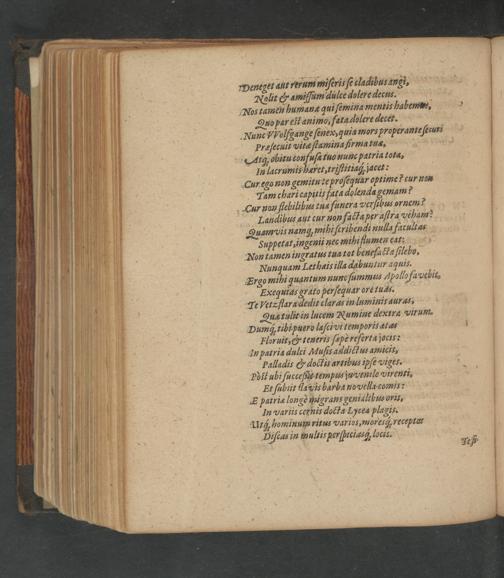 Deneget aut rerum miseris se cladibus angi,
Nolit & amissum dulce dolere decus.
Nos tamen humanæ qui semina mentis habemus,
Quo par est animo, fata dolere decet.
Nunc VVolfgange senex, quia mors properante securi
Præsecuit vitæ stamina firma tuæ,
Atq́, obitu confusa tuo nunc patria tota,
In lacrumis hæret, tristitiaq́, jacet:
Cur ego non gemitu te prosequar optime? cur non
Tam chari capitis fata dolenda gemam?
Cur non flebilibus tua funera versibus ornem?
Laudibus aut cur non facta per astra veham?
Quamvis namq, mihi scribendi nulla facultas
Suppetat, ingenii nec mihi flumen eat:
Non tamen ingratus tua tot benefacta silebo,
Nunquam Lethais illa dabuntur aquis.
Ergo mihi quantum nunc summus Apollo favebit,
Exequias grato persequar ore tuas.
Te Vetzflara dedit claras in luminis auras,
Quæ tulit in lucem Numine dextra virum.
Dumq́, tibi puero lascivi temporis ætas
Floruit, & teneris sæpè referta jocis:
In patria dulci Musis addictus amicis,
Palladis & doctis artibus ipse viges.
Pòst ubi successit tempus juvenile virenti,
Et subiit flavis barba novella comis:
E patriæ longè migrans genialibus oris,
In variis cernis docta Lycea plagis.
Utq́, hominum ritus varios, moresq́, receptos
Discas in multis perspiciasq́, locis.
Te si-